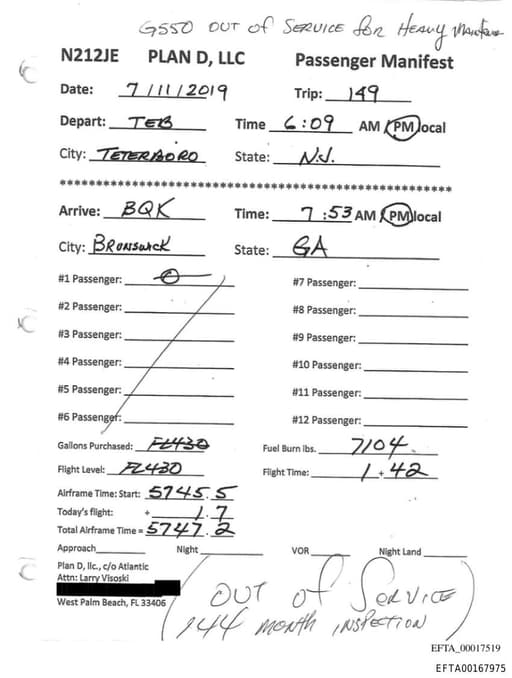 G550 OUT of SERVICE for HEAVY
N212JE PLAN D, LLC Passenger Manifest
Date: 7/11/2019 Trip: 149
Depart: TEB Time 6:09 AM/PM local
City: TETERBORO State: N.J.
************************************************************
Arrive: BQK Time: 7:53 AM/PM local
City: BRUNSWICK State: GA
#1 Passenger: 0 #7 Passenger:
#2 Passenger: #8 Passenger:
#3 Passenger: #9 Passenger:
#4 Passenger: #10 Passenger:
#5 Passenger: #11 Passenger:
#6 Passenger: #12 Passenger:
Gallons Purchased: FL430 Fuel Burn lbs. 7104
Flight Level: FL430 Flight Time: 1 + 42
Airframe Time: Start: 5745.5
Today's flight: + 1.7
Total Airframe Time = 5747.2
Approach Night VOR Night Land
Plan D, llc., c/o Atlantic
Attn: Larry Visoski
West Palm Beach, FL 33406
OUT of SERVICE
144 MONTH INSPECTION
EFTA_00017519
EFTA00167975